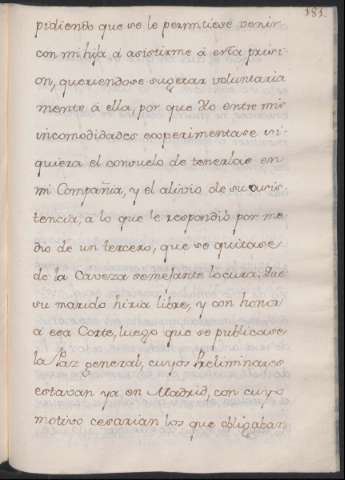 181.
pidiendo que se le permitiese venir
con mi hija á asistirme á esta prisi-
on, queriendose sugetar voluntaria
mente á ella, por que Yo entre mis
incomodidades experimentase si-
quiera el consuelo de tenerlas en
mi Compañia, y el alivio de su asis-
tencia, á lo que le respondió por me
dio de un tercero, que se quitase
de la Caveza semejante locura, que
su marido hiria libre, y con honor
á esa Corte, luego que se publicase
la Paz general, cuyos Preliminares
estavan ya en Madrid, con cuyo
motivo cesarian los que obligaban